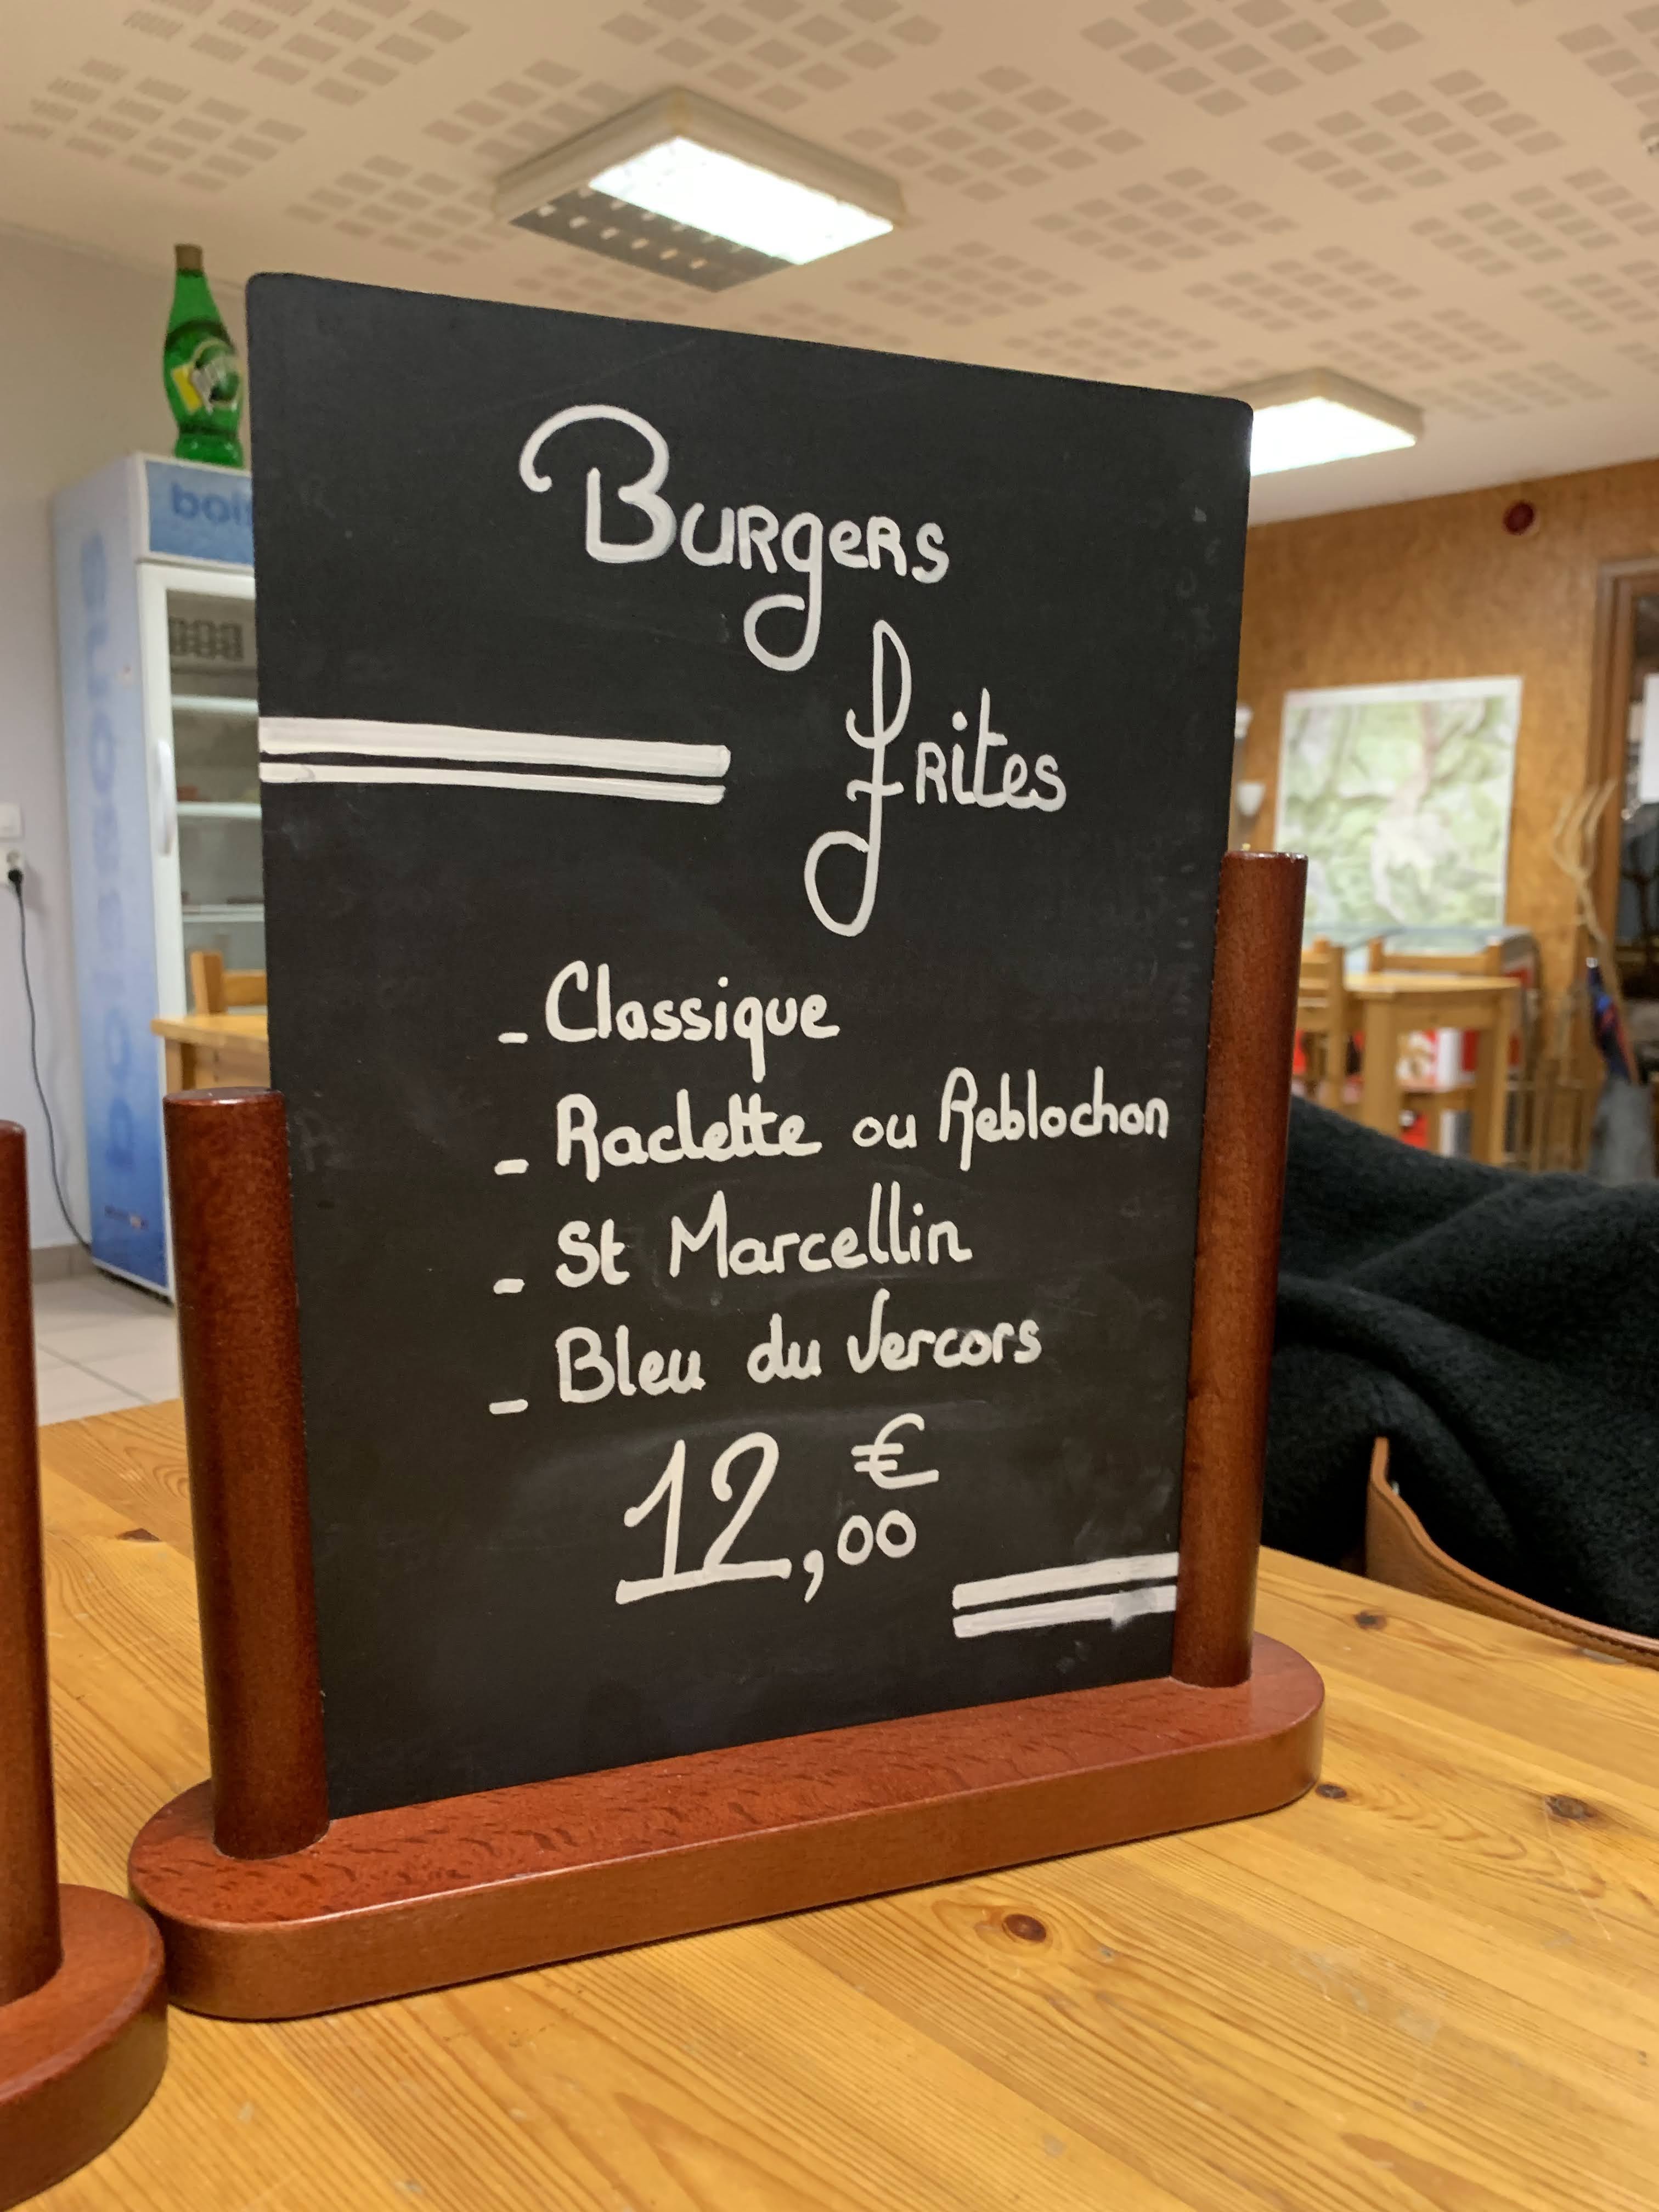 Burgers
frites
- Classique
- Raclette ou Reblochon
- St Marcellin
- Bleu du Vercors
12,00 €